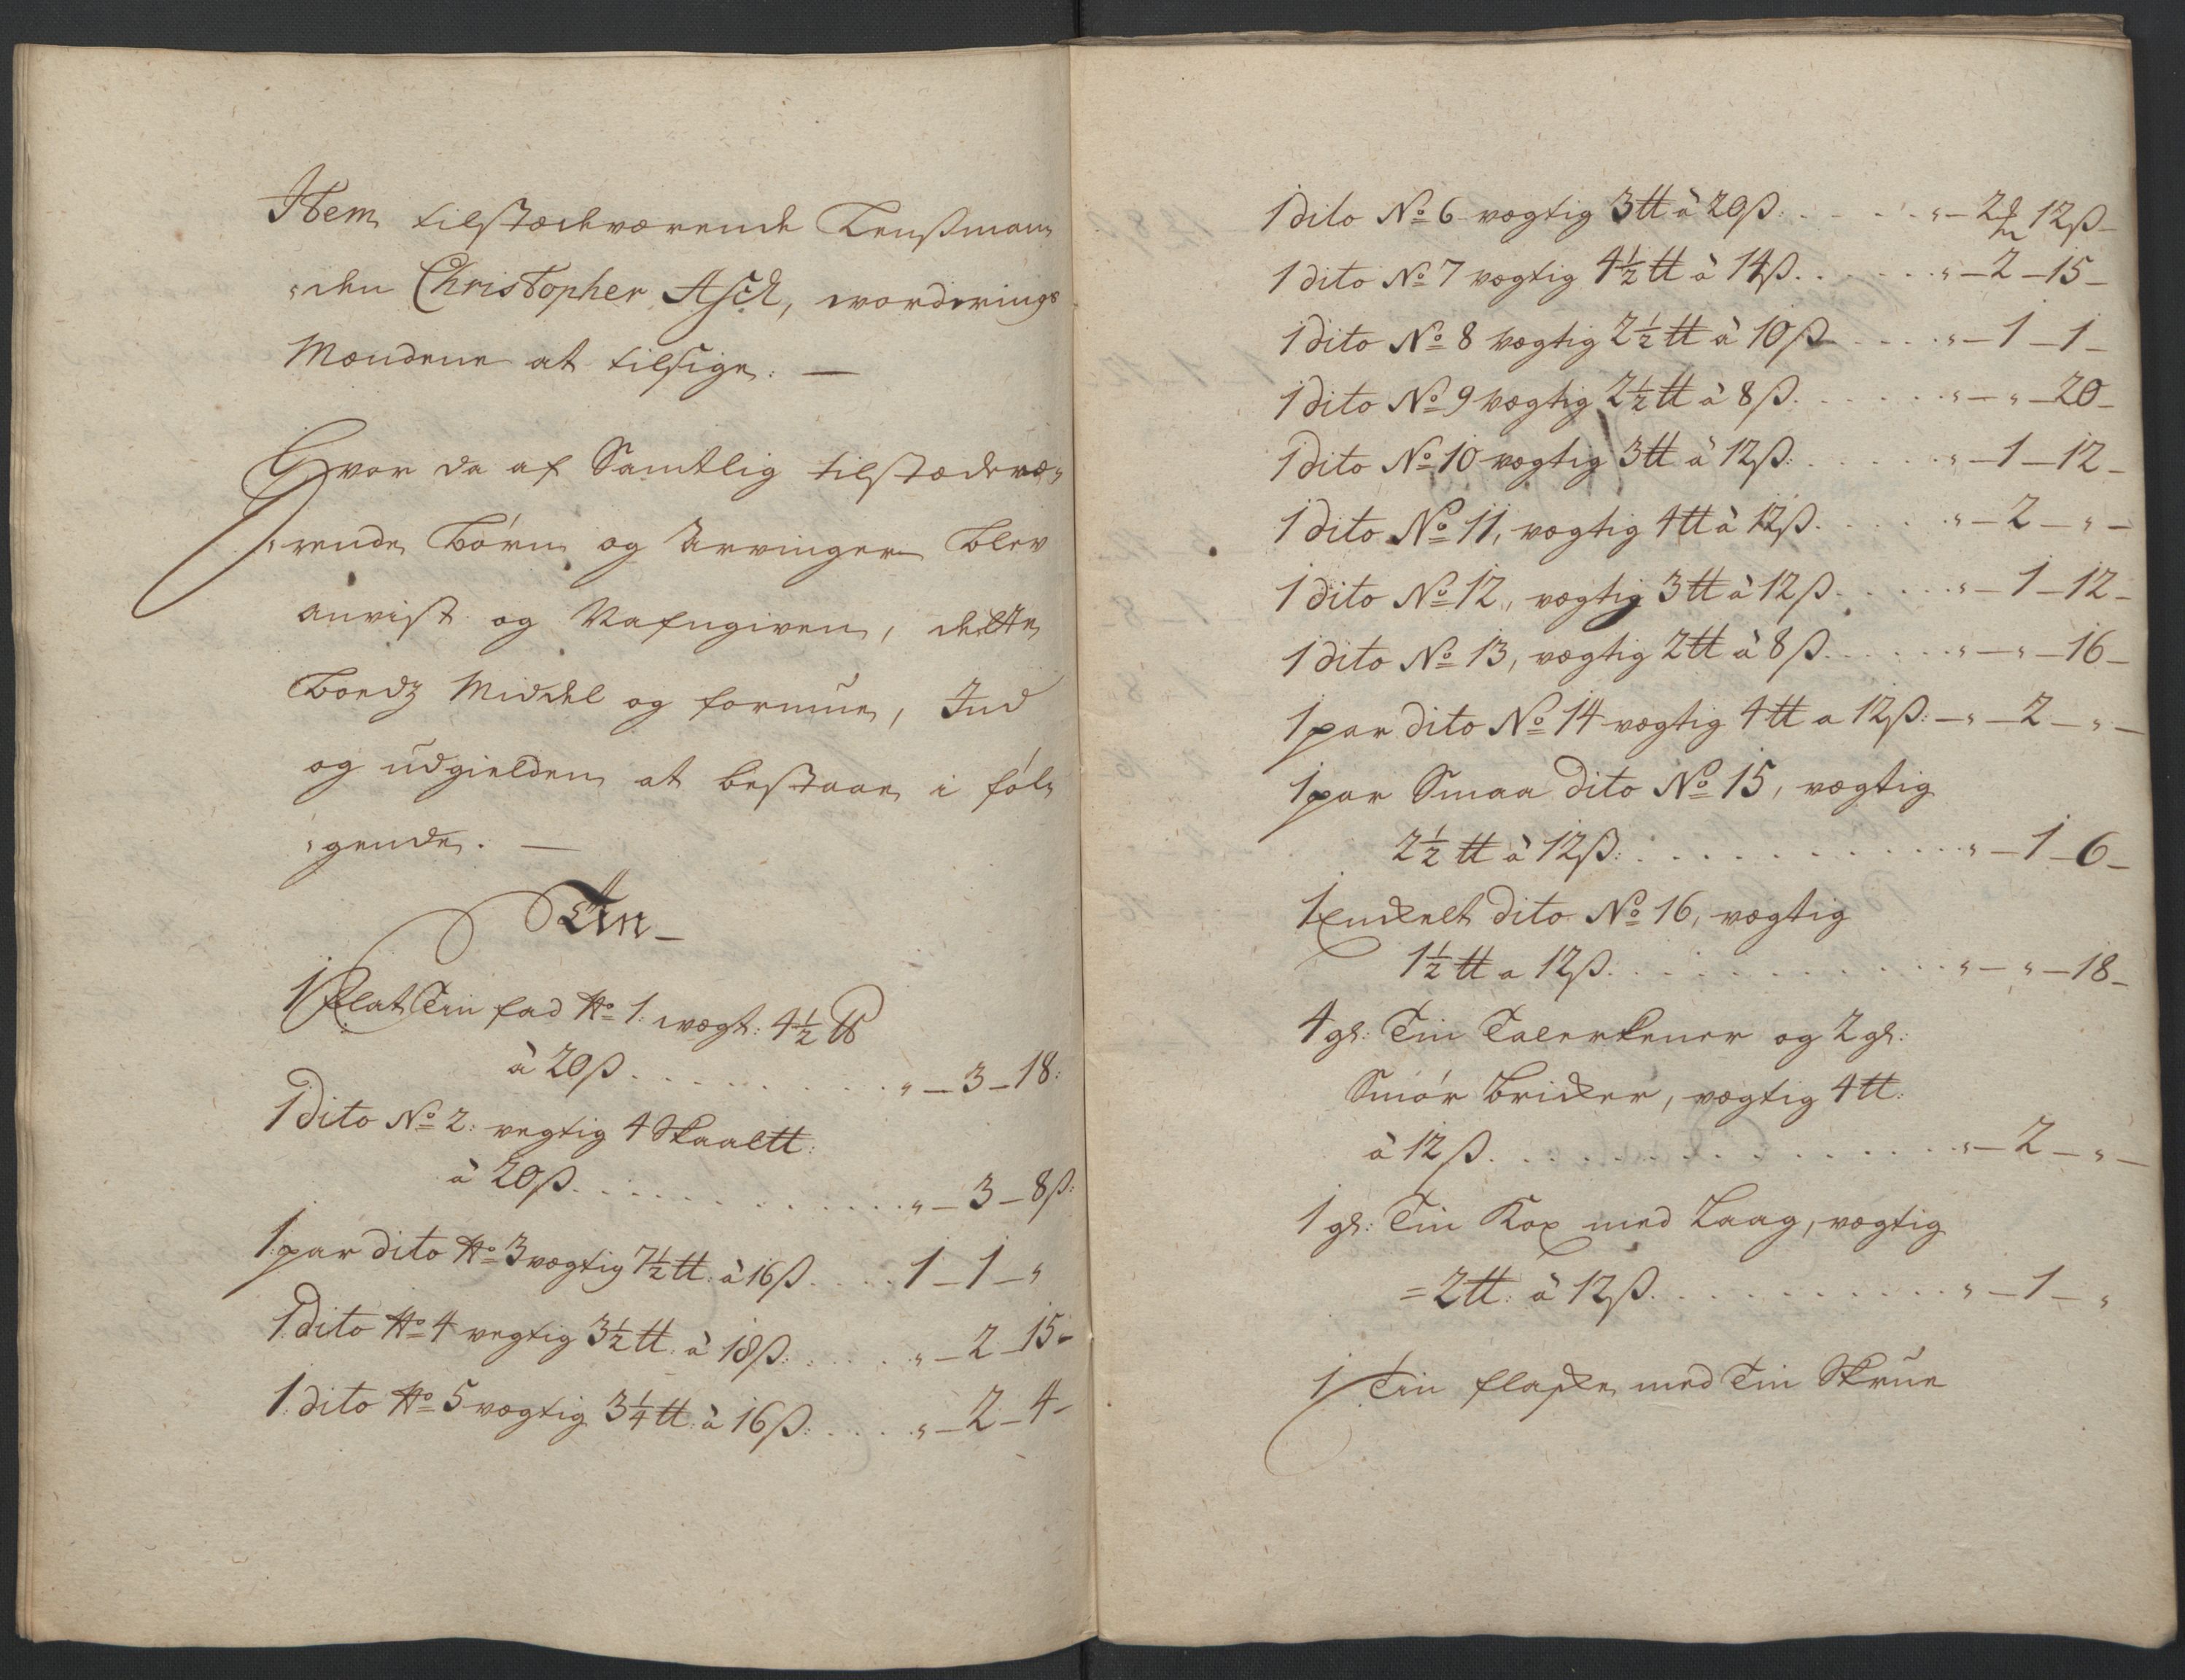 Item tilstædeværende Lensman„
„den Christopher Asch, worderings
Mændene at tilsige. —
Hvor da af Samtlig tilstædevæ„
„rende Børn og Arvinger blev
anvist og Nafngiven, dette
Boedz Middel og formue, Ind
og udgielden at bestaae i føl„
„gende. —
Tin –
1 flat Tin fad No 1. wægt: 4½ ℔
à 20ß . . . . . . . . . . „ – 3 – 18:
1 dito No 2: vegtig 4 Skaal℔:
à 20ß . . . . . . . . . . . . „ – 3 – 8ß:
1 par dito No 3 vægtig 7½ ℔: à 16ß . . . . 1 – 1 – „
1 dito No 4 vegtig 3½ ℔: à 18ß: . . . . „ – 2 – 15 –
1 dito No 5 vægtig 3¼ ℔: à 16ß: . . . . „ – 2 – 4 –
1 dito No 6 vægtig 3 ℔ à 20ß: . . . . . „ – 2 12ß –
1 dito No 7 vægtig 4½ ℔ à 14ß. . . . . . „ – 2 – 15 –
1 dito No 8 vægtig 2½ ℔ à 10ß . . . . „ – 1 – 1 –
1 dito No 9 vægtig 2½ ℔ à 8ß. . . . . . „ – „ – 20 –
1 dito No 10 vægtig 3 ℔ à 12ß: . . . . . „ – 1 – 12 –
1 dito No 11, vægtig 4 ℔ à 12ß. . . . . „ – 2 – „ –
1 dito No 12, vægtig 3 ℔ à 12ß. . . . . „ – 1 – 12 –
1 dito No 13, vægtig 2 ℔ à 8ß. . . . . . „ – „ – 16 –
1 par dito No 14 vægtig 4 ℔ a 12ß: – „ – 2 – „ –
1 par Smaa dito No 15, vægtig
2½ ℔ à 12ß: . . . . . . . . . . . „ – 1 – 6 –
1 Enckelt dito No 16, vægtig
1½ ℔ a 12ß. . . . . . . . . . . „ – „ – 18 –
4 gl: Tin Talerkener og 2 gl:
Smør Bricker, vægtig 4 ℔:
à 12ß. . . . . . . . . . . . . . „ – 2 – „ –
1 gl: Tin Kop med Laag, vægtig
= 2 ℔: à 12ß. . . . . . . . . . . „ – 1 – „
1 Tin flaske med Tin Skrue